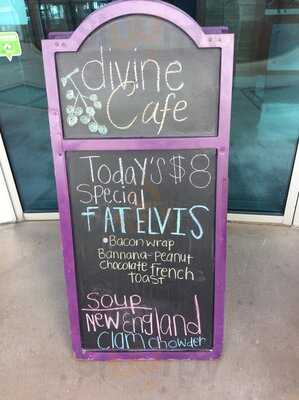 divine
Cafe
Today's $8
Special
FAT ELVIS
•Bacon wrap
Bannana-Peanut
chocolate french
toast
Soup
New England
Clam Chowder